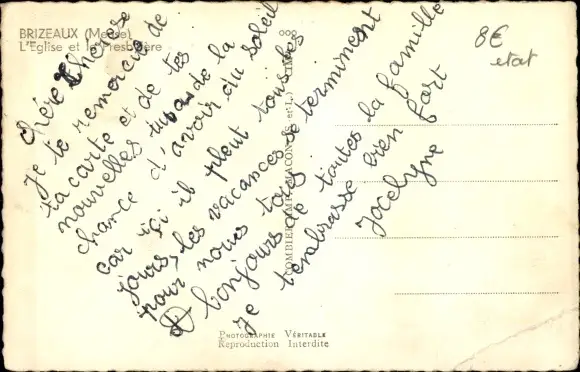 BRIZEAUX (Meuse)
L'Eglise et le Presbytère
8€
etat
chère Thérèse
Je te remercie de
ta carte et de tes
nouvelles tu as de la
chance d'avoir du soleil
car ici il pleut tous les
jours, les vacances se terminent
pour nous tous
bonjours de toutes la famille
je tembrasse bien fort
Jocelyne
COMBIER IMP. MACON (S.-et-L.)
PHOTOGRAPHIE VÉRITABLE
Reproduction Interdite